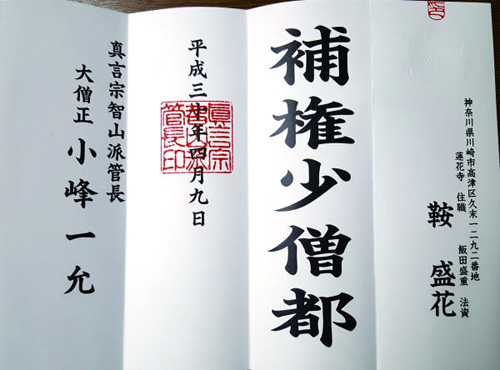 神奈川県川崎市高津区久末一二九二番地
蓮花寺 住職 飯田盛重 法資
鞍 盛花
補権少僧都
平成三十年四月九日
眞言宗智山派管長印
真言宗智山派管長
大僧正 小峰一允